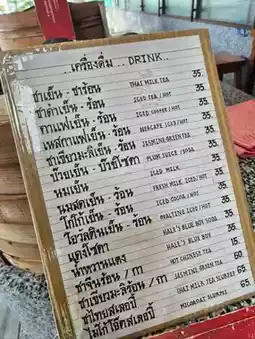 ..เครื่องดื่ม .. DRINK..
ชาเย็น - ชาร้อน THAI MILK TEA 35.
ชาดำเย็น - ร้อน ICED TEA / HOT 35.
กาแฟเย็น - ร้อน ICED COFFEE / HOT 35.
เนสกาแฟเย็น - ร้อน NESCAFE ICED/HOT 35.
ชาเขียวมะลิเย็น - ร้อน JASMINE GREEN TEA 35.
บ๊วยเย็น - บ๊วยโซดา PLUM JUICE / SODA 35.
นมเย็น ICED MILK 35.
นมสดเย็น - ร้อน FRESH MILK ICED/HOT 35.
โกโก้เย็น - ร้อน ICED COCOA / HOT 35.
โอวัลตินเย็น - ร้อน OVALTINE ICED / HOT 35.
แดงโซดา HALL'S BLUE BOY SODA 35.
น้ำหวานแดง HALL'S BLUE BOY 35.
ชาจีนร้อน / กา HOT CHINESE TEA 15.
ชาเขียวมะลิร้อน / กา JASMINE GREEN TEA 60.
ชาไทยสเลอปี้ THAI MILK TEA SLURPEE 65.
ไมโกโก้โอ๊ตสเลอปี้ SLURPEE 65.